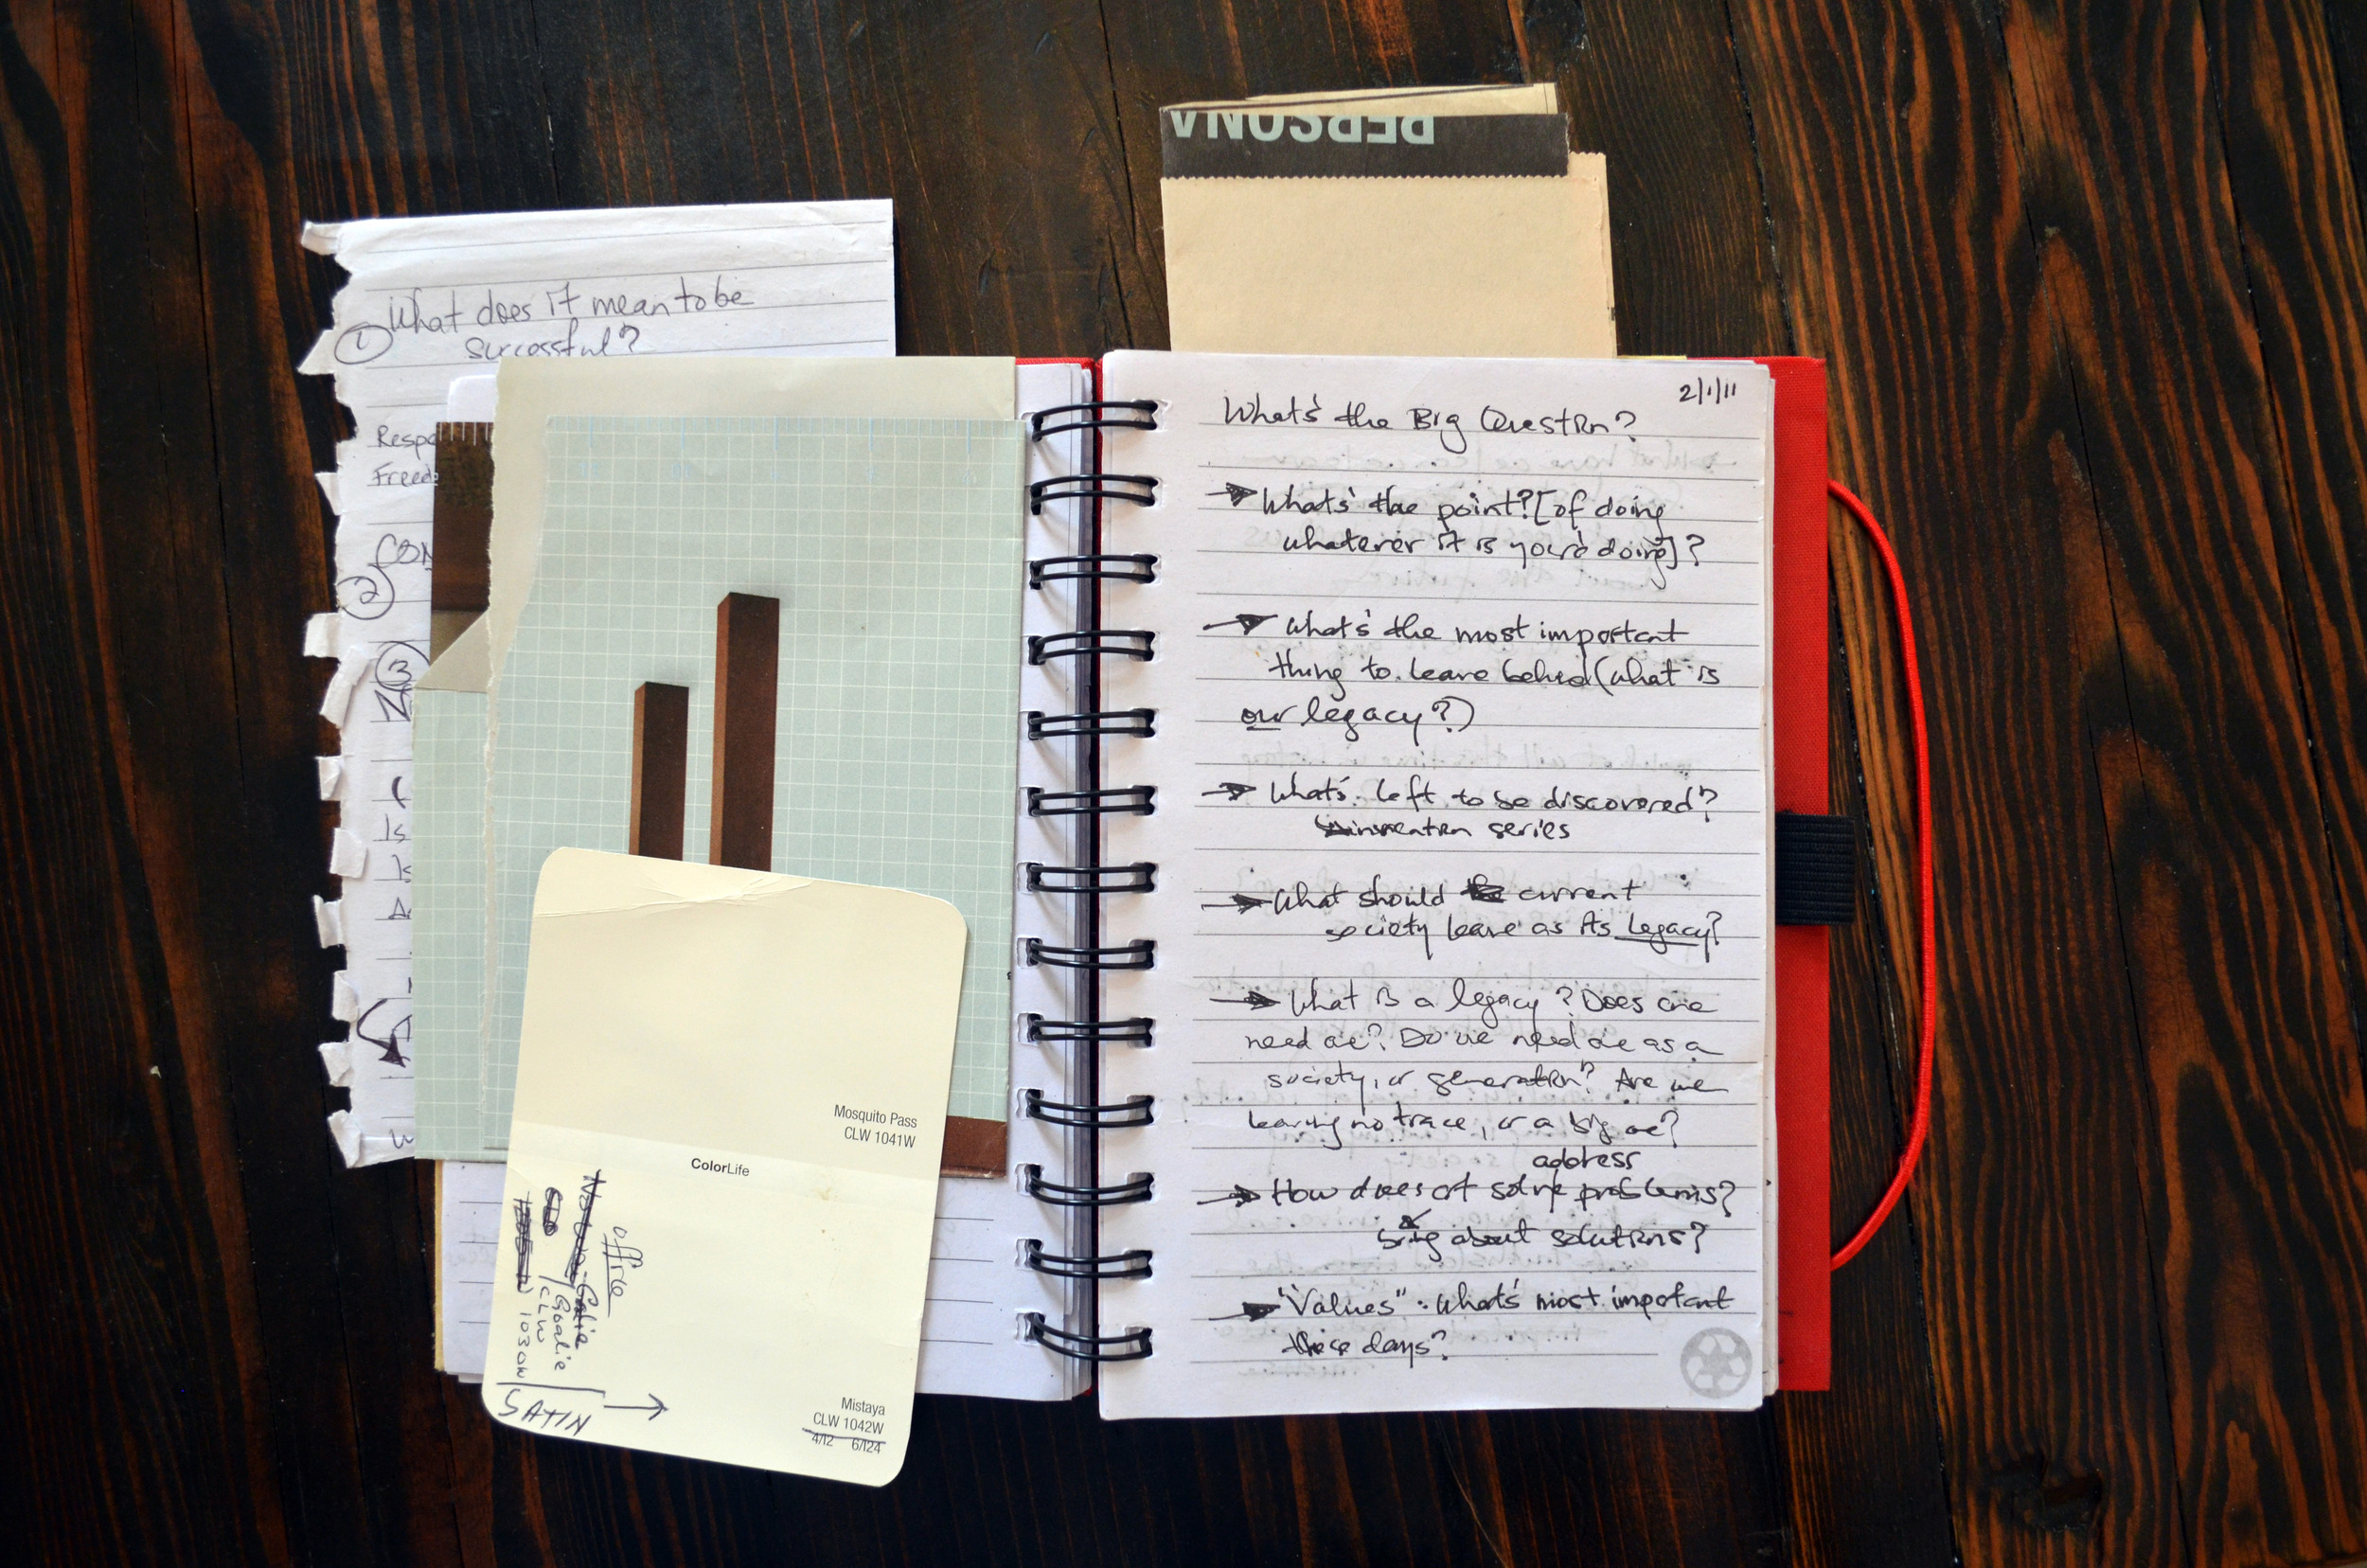 PERSONA
What does it mean to be
① successful?
Respo
Freed
CON
②
③
Mosquito Pass
CLW 1041W
ColorLife
office
Goalie
CLW
1030W
SATIN
Mistaya
CLW 1042W
4/12 6/124
2/1/11
What's the Big Question?
→ What's the point? [of doing
whatever it is you're doing]?
→ What's the most important
thing to leave behind (what is
our legacy?)
→ What's left to be discovered?
invention series
→ What should current
society leave as its legacy?
→ What is a legacy? Does one
need one? Do we need one as a
society, or generation? Are we
leaving no trace, or a big one?
address
→ How does art solve problems?
bring about solutions?
→ "Values": What's most important
these days?